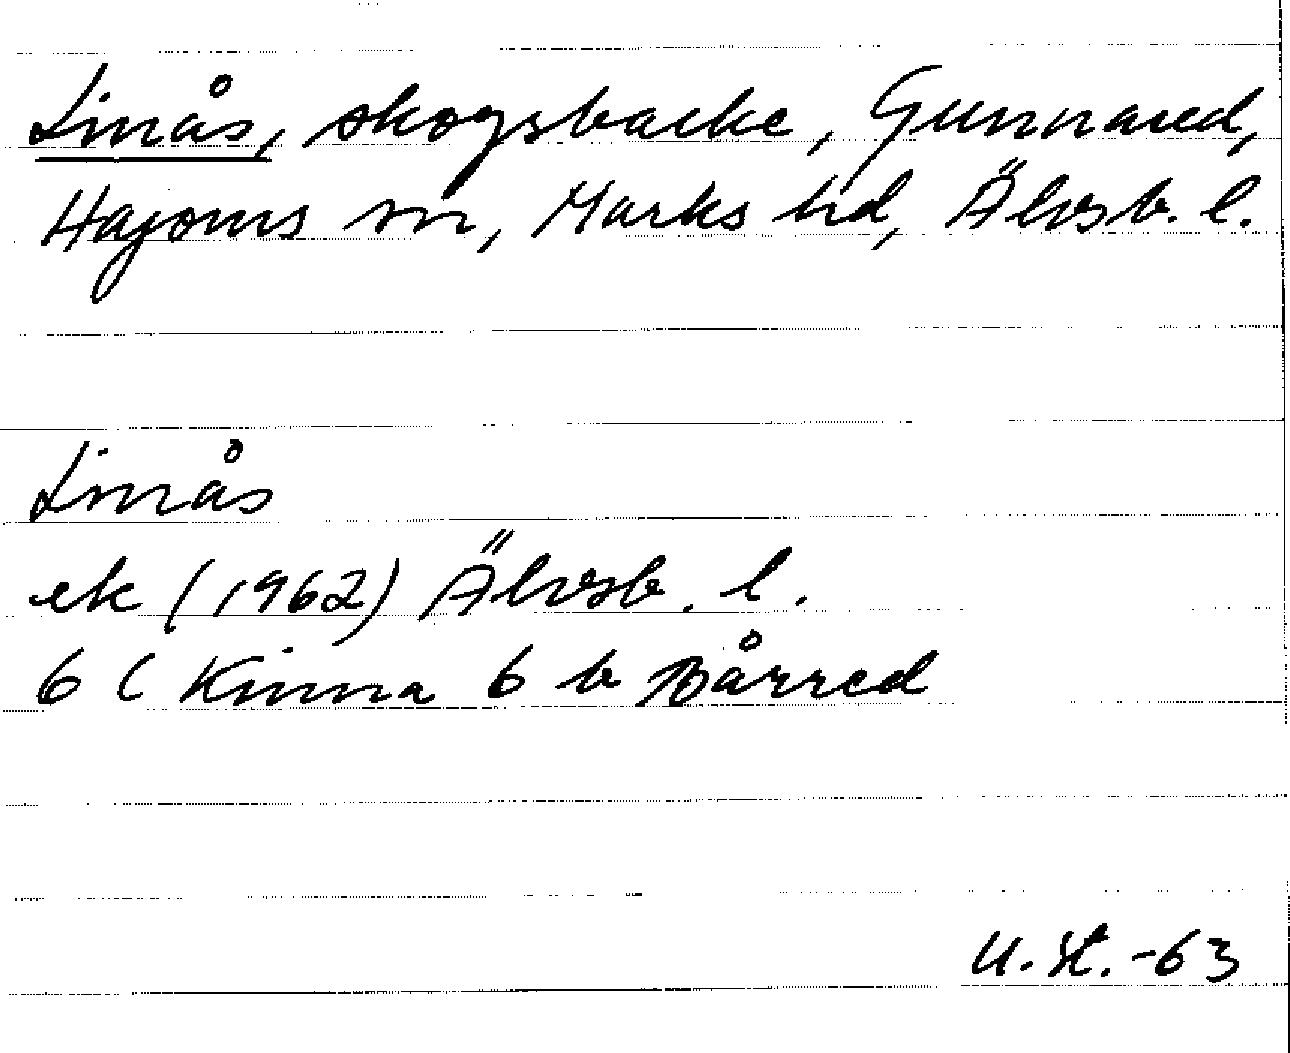 Linås, skogsbacke, Gunnared,
Hajoms sn, Marks hd, Älvsb. l.
Linås
ek (1962) Älvsb. l.
6 C Kinna 6 b Bårred
U. St. -63